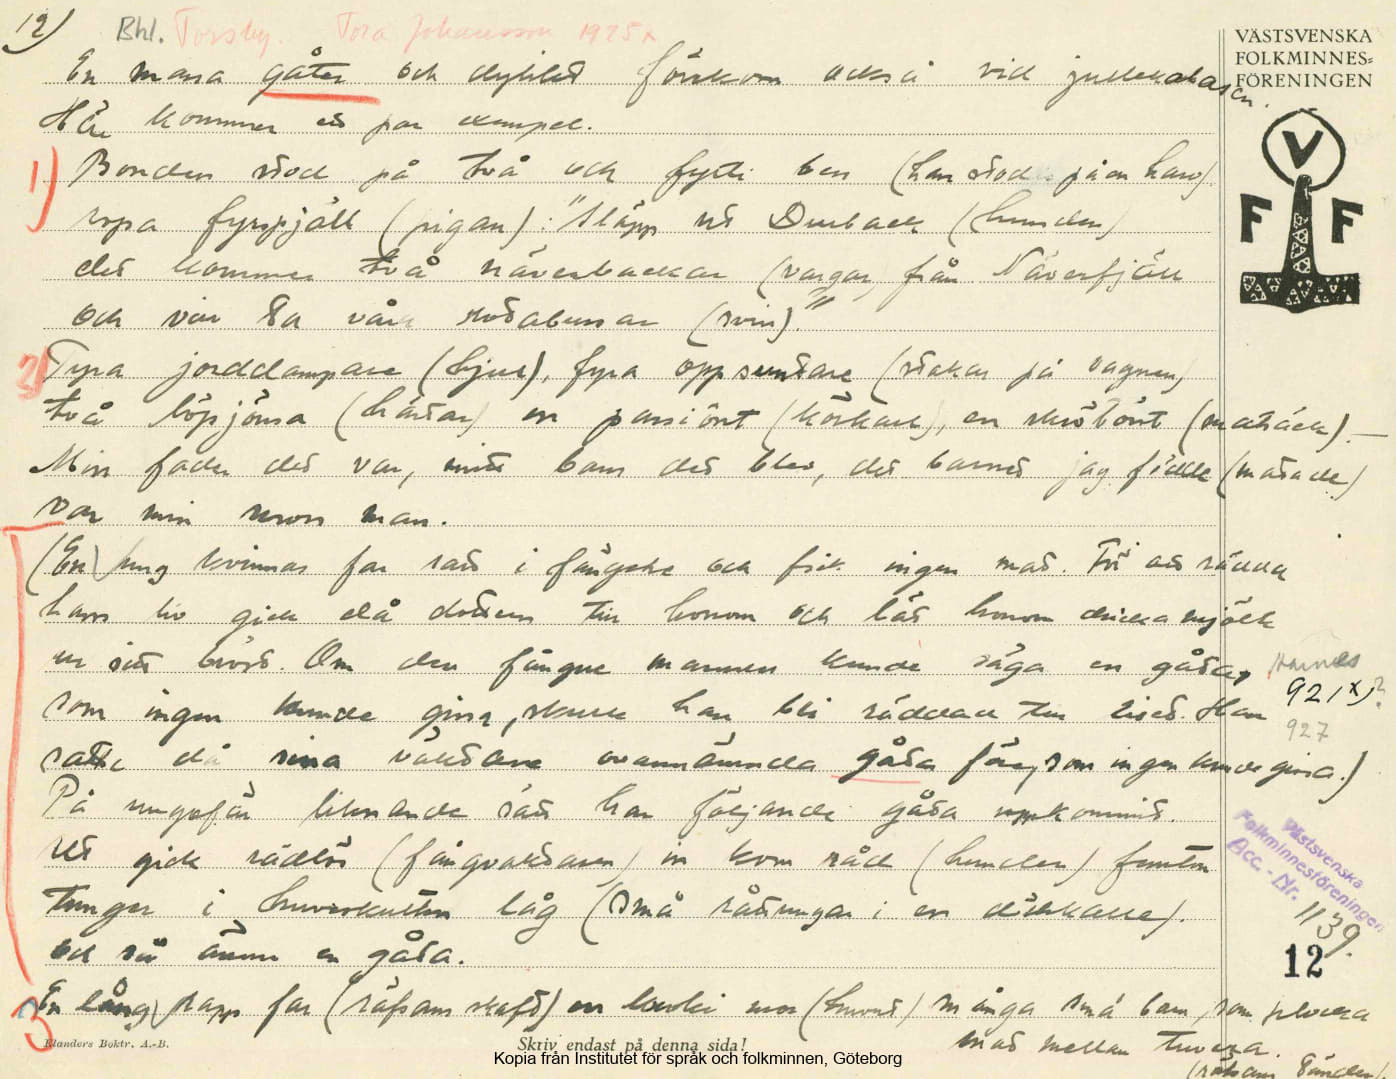 12)
Bhl. Torsby. Tora Johansson 1925.
VÄSTSVENSKA
FOLKMINNES=
FÖRENINGEN
V
F F
En massa gåtor och dylikt förekom också vid julleksalasen.
Här kommer ett par exempel.
1) Bonden stod på två och fytti ben (han stod på en harv)
ropa fyrpjätt (pigan): "Släpp ut Durback (hunden)
det kommer två näverbackar (vargar) från Näverfjäll
och vill ta våra (svin)."
2) Fyra jorddampare (hjul), fyra opp (stakar på vagnen)
två löpjönsa (hästar) en (körkarl), en (matsäck). —
Min fader det var, mitt barn det blev, det barnet jag födde (matade)
var min mors man.
(En ung kvinnas far satt i fängelse och fick ingen mat. För att rädda
hans liv gick då dottern till honom och lät honom dricka mjölk
ur sitt bröst. Om den fångne mannen kunde säga en gåta,
som ingen kunde gissa, skulle han bli räddad till livet. Han
satte då sina väktare ovannämnda gåta före, som ingen kunde gissa.)
921x)?
927
På ungefär liknande sätt har följande gåta uppkommit.
Ut gick rådlös (fångvaktaren) in kom råd (hunden) femton
tungor i låg (små råttungar i en dödskalle).
och så ännu en gåta.
3 En lång rapp far (räfsans skaft) en mor (huvud) många små barn, som plocka
mat mellan tuvera.
(räfsans tänder).
Västsvenska
Folkminnesföreningen
Acc.-Nr.
1139.
12
Elanders Boktr. A.-B.
Skriv endast på denna sida!
Kopia från Institutet för språk och folkminnen, Göteborg